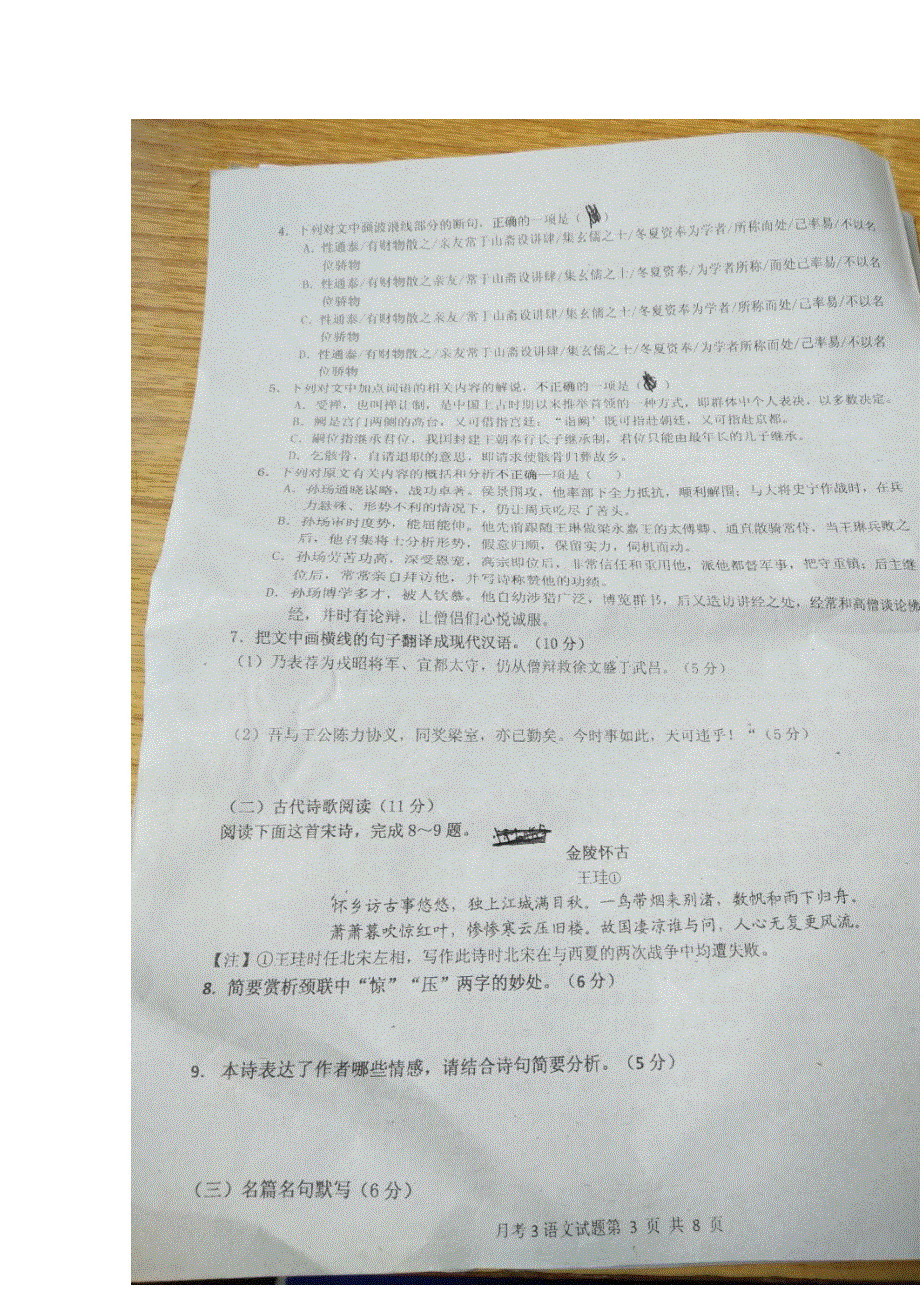 4．下列对文中画波浪线部分的断句，正确的一项是（ ）
A．性通泰/有财物散之/亲友常于山斋设讲肆/集玄儒之士/冬夏资奉为学者/所称而处/己率易/不以名
位骄物
B．性通泰/有财物散之亲友/常于山斋设讲肆/集玄儒之士/冬夏资奉/为学者所称/而处己率易/不以名
位骄物
C．性通泰/有财物散之亲友/常于山斋设讲肆/集玄儒之士/冬夏资奉为学者/所称而处/己率易/不以名
位骄物
D．性通泰/有财物散之/亲友常于山斋设讲肆/集玄儒之士/冬夏资奉/为学者所称而处/己率易/不以名
位骄物
5．下列对文中加点词语的相关内容的解说，不正确的一项是（ ）
A．受禅，也叫禅让制，是中国上古时期以来推举首领的一种方式，即群体中个人表决，以多数决定。
B．阙是宫门两侧的高台，又可借指宫廷；“诣阙”既可指赴朝廷，又可指赴京都。
C．嗣位指继承君位，我国封建王朝奉行长子继承制，君位只能由最年长的儿子继承。
D．乞骸骨，自请退职的意思，即请求使骸骨归葬故乡。
6．下列对原文有关内容的概括和分析不正确一项是（ ）
A．孙玚通晓谋略，战功卓著。侯景围攻，他率部下全力抵抗，顺利解围；与大将史宁作战时，在兵
力悬殊、形势不利的情况下，仍让周兵吃尽了苦头。
B．孙玚审时度势，能屈能伸。他先前跟随王琳做梁永嘉王的太傅卿、通直散骑常侍。当王琳兵败之
后，他召集将士分析形势，假意归顺，保留实力，伺机而动。
C．孙玚劳苦功高，深受恩宠，高宗即位后，非常信任和重用他，派他都督军事，把守重镇；后主继
位后，常常亲自拜访他，并写诗称赞他的功绩。
D．孙玚博学多才，被人钦慕。他自幼涉猎广泛，博览群书，后又造访讲经之处，经常和高僧谈论佛
经，并时有论辩，让僧侣们心悦诚服。
7．把文中画横线的句子翻译成现代汉语。（10分）
（1）乃表荐为戎昭将军、宜都太守，仍从僧辩救徐文盛于武昌。（5分）
（2）吾与王公陈力协义，同奖梁室，亦已勤矣。今时事如此，天可违乎！“（5分）
（二）古代诗歌阅读（11分）
阅读下面这首宋诗，完成8～9题。
金陵怀古
王珪①
怀乡访古事悠悠，独上江城满目秋。一鸟带烟来别渚，数帆和雨下归舟。
萧萧暮吹惊红叶，惨惨寒云压旧楼。故国凄凉谁与问，人心无复更风流。
【注】①王珪时任北宋左相，写作此诗时北宋在与西夏的两次战争中均遭失败。
8．简要赏析颈联中“惊”“压”两字的妙处。（6分）
9．本诗表达了作者哪些情感，请结合诗句简要分析。（5分）
（三）名篇名句默写（6分）
月考3语文试题第 3 页 共 8 页